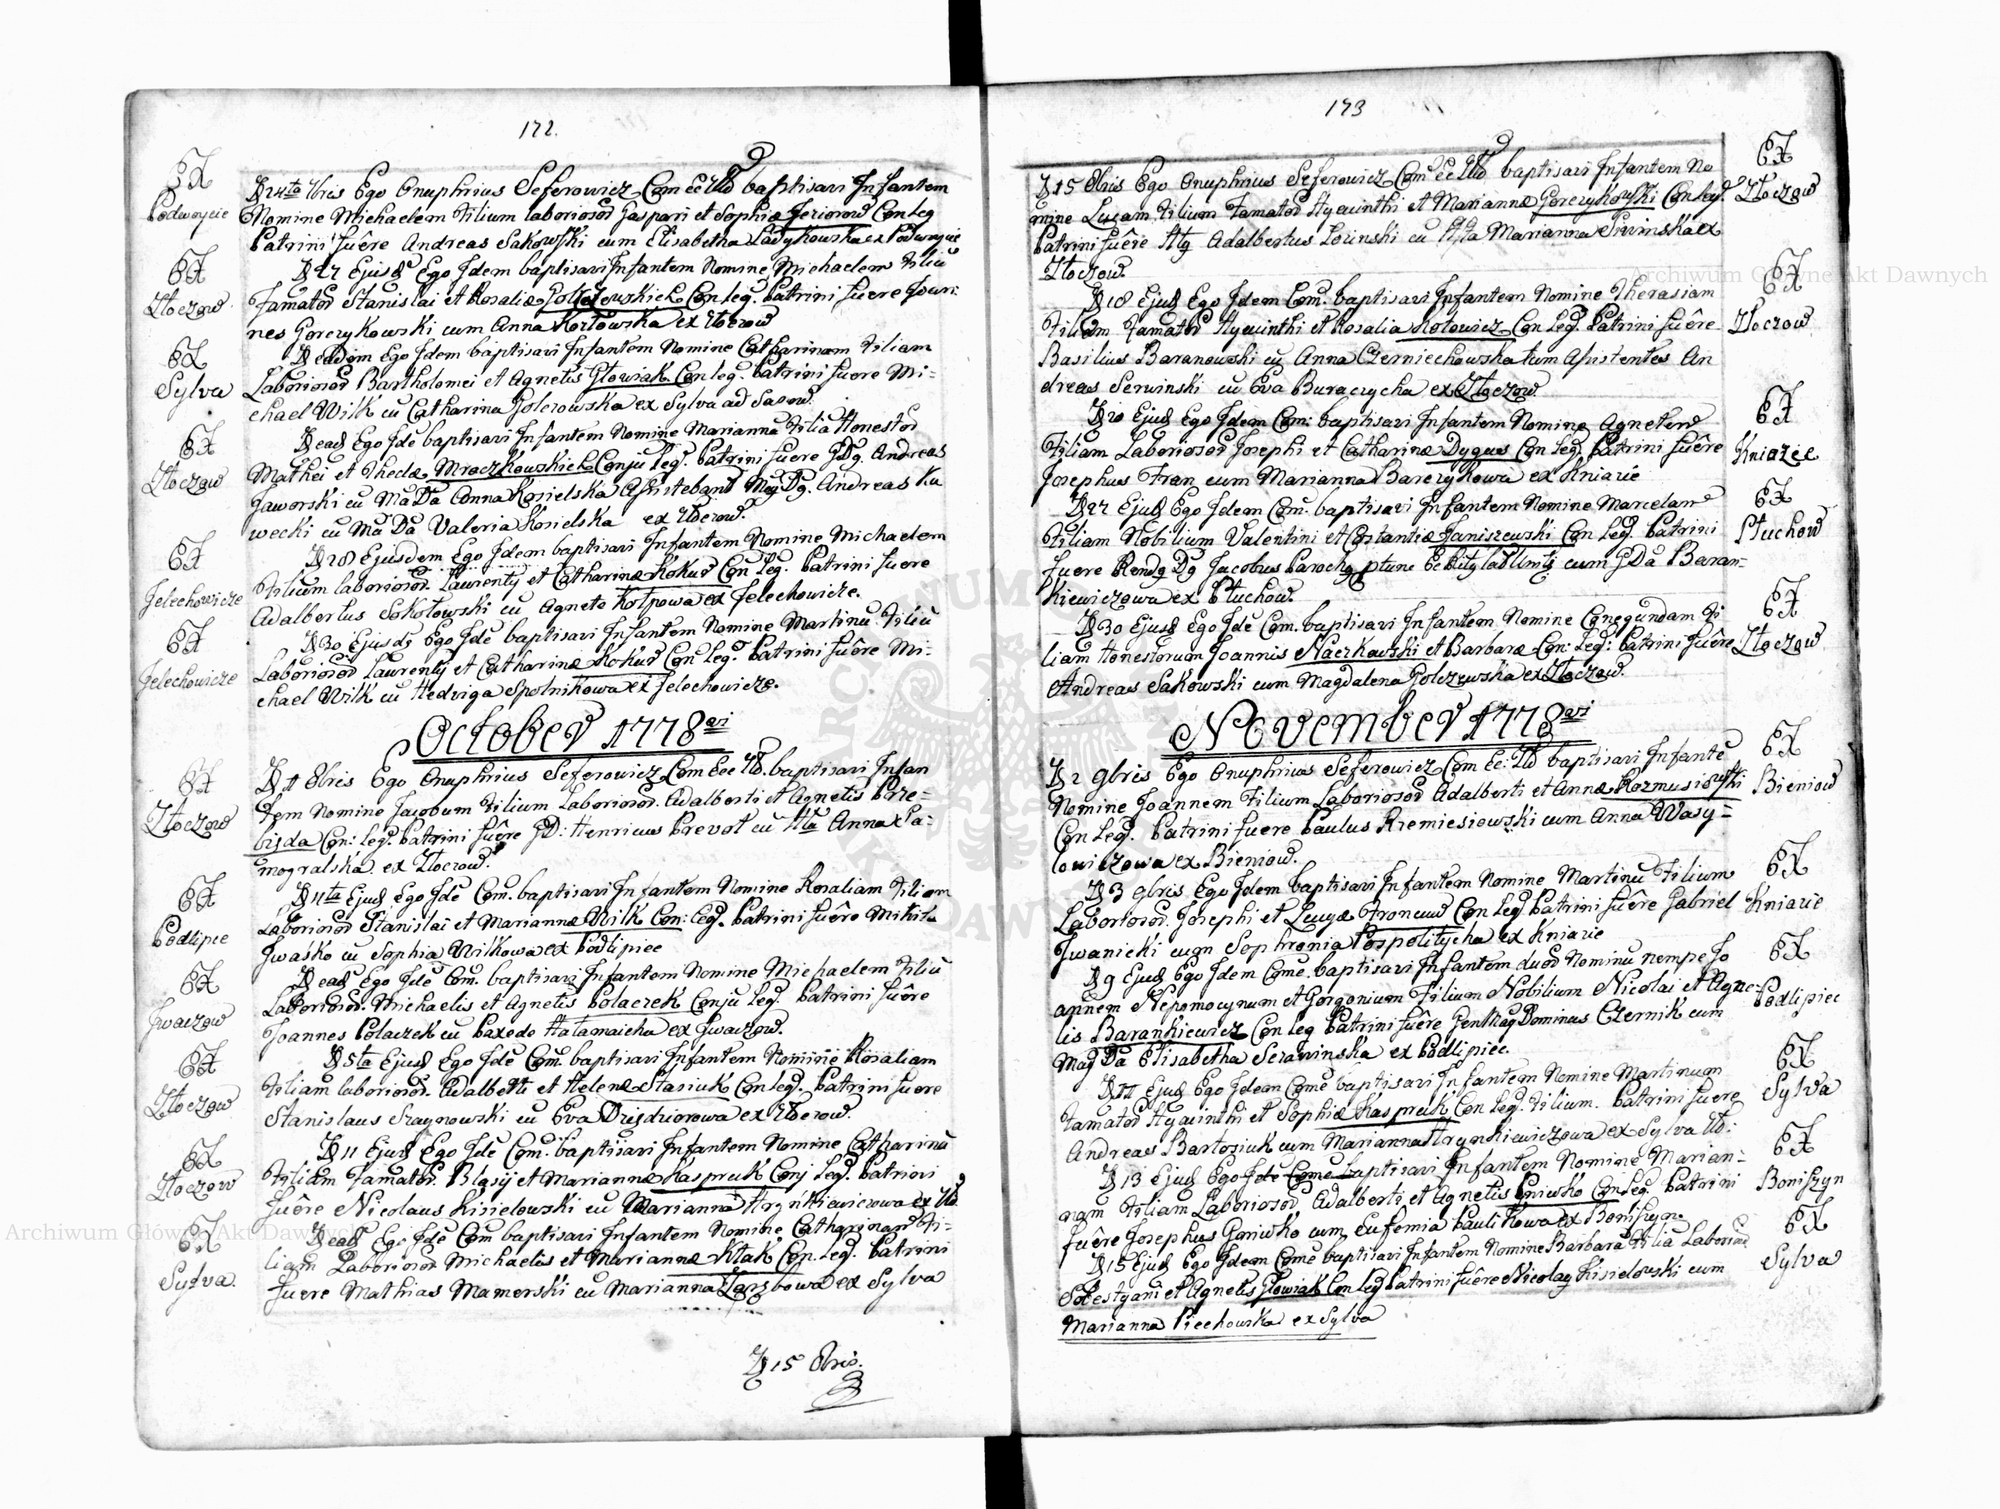 172.
EX
Podwoycie
D 24ta 7bris Ego Onuphrius Seferowicz Com Ec Zło baptisavi Infantem
Nomine Michaelem Filium laboriosor Gaspari et Sophiæ Jeriorow Con Leg
Patrini fuêre Andreas Sakowski cum Elisabetha Ladykowska ex Podwoycie
EX
Złoczow
D 27 Ejusd Ego Idem baptisavi Infantem Nomine Michaelem Filiū
Famator Stanislai et Rosaliæ Conleg. Patrini fuere Joan
nes Gorczykowski cum Anna Kozłowska ex Złoczow
EX
Sylva
D eadem Ego Idem baptisavi Infantem Nomine Catharinam Filiam
Laboriosor Bartholomei et Agnetis Głowiak Conleg. Patrini fuere Mi=
chael Wilk cū Catharina Golczowska ex Sylva ad Sasow.
EX
Złoczow
D ead Ego Idē baptisavi Infantem Nomine Marianna Filia Honestor
Mathei et Theclæ Mroczkowskich Conju Leg. Patrini fuere GDg. Andreas
Jaworski cū Ma Da Anna Kosielska Mag Dg. Andreas Ku
wecki cū Ma Da Valeria Kosielska ex Złoczow.
EX
Jelechowicze
D 28 Ejusdem Ego Idem baptisavi Infantem Nomine Michaelem
Filium laboriosor. Laurenty et Catharinæ Kokur Con Leg. Patrini fuere
Adalbertus Sokołowski cū Agneta Kołpowa ex Jelechowicze.
EX
Jelechowicze
D 30 Ejusd; Ego Idē baptisavi Infantem Nomine Martinū Filiū
Laboriosor Laurenty et Catharinæ Kokur Con Leg. Patrini fuêre Mi=
chael Wilk cū Hedviga Spolnikowa ex Jelechowicze.
October 1778vi
EX
Złoczow
D 1 8bris Ego Onuphrius Seferowicz Com Ecc Zło. baptisavi Infan
tem Nomine Jacobum Filium Laboriosor. Adalberti et Agnetis Prze=
bisda Con: Leg. Patrini fuêre GD: Henricus Prevot cū Anna Sa=
mogralska ex Złoczow.
EX
Podlipie
D 4ta Ejusd Ego Idē Com. baptisavi Infantem Nomine Rosaliam Filiam
Laboriosor Stanislai et Mariannæ Wilk Con: Leg. Patrini fuêre Mikita
Jwasko cū Sophia Wilkowa ex Podlipiec
EX
Jwaczow
D ead Ego Idē Com. baptisavi Infantem Nomine Michaelem Filiū
Laboriosor. Michaelis et Agnetis Polaczek Conju Leg. Patrini fuêre
Joannes Polaczek cū Paxeda Hatamaicha ex Jwaczow.
EX
Złoczow
D 5ta Ejusd Ego Idē Com. baptisavi Infantem Nomine Rosaliam
Filiam laboriosor. Adalberti et Helenæ Stasiuk Con Leg. Patrini fuere
Stanislaus Sraynowski cū Eva Dziedziorowa ex Złoczow.
EX
Złoczow
D 11 Ejusd Ego Idē Com. baptisavi Infantem Nomine Catharinā
Filiam Famator. Blasij et Mariannæ Kaspruk Conj Leg. Patrini
fuêre Nicolaus Kisielowski cū Marianna Hryńkiewiczowa ex Zło
EX
Sylva.
D ead Ego Idē Com baptisavi Infantem Nomine Catharinam Fi=
liam Laboriosor Michaelis et Mariannæ Ktak Con. Leg. Patrini
fuere Mathias Mamerski cū Marianna ex Sylva
D 15 8bris.
173
EX
Złoczow
D 15 8bris Ego Onuphrius Seferowicz Com Ec Zło baptisavi Infantem No
mine Lucam Filium Famator Hyacinthi et Mariannæ Gorczykowski Con Leg.
Patrini fuêre Adalbertus Lozinski cū Marianna Srwinska ex
Złoczow.
EX
Złoczow
D 18 Ejusd Ego Idem Com. baptisavi Infantem Nomine Therasiam
Filiam Famator Hyacinthi et Rosalia Kotowicz Con Leg. Patrini fuêre
Basilius Baranowski cū Anna Czerniechowska tum Assistentes An
dreas Serwinski cū Eva Buraczycha ex Złoczow.
EX
Kniazie
D 20 Ejusd Ego Idem Com: baptisavi Infantem Nomine Agnetem
Filiam Laboriosor Josephi et Catharinæ Dygus Con Leg. Patrini fuêre
Josephus Fran cum Marianna Barczykowa ex Kniazie
EX
Płuchow
D 22 Ejusd Ego Idem Com. baptisavi Infantem Nomine Marcelam
Filiam Nobilium Valentini et Costantiæ Janiszewski Con Leg. Patrini
fuere Rendg Dg Jacobus Parochg cum G Da Baran=
kiewiczowa ex Płuchow.
EX
Złoczow
D 30 Ejusd Ego Idē Com. baptisavi Infantem Nomine Conegundam Fi
liam Honestorum Joannis Naczkowski et Barbaræ Con: Leg: Patrini fuêre
Andreas Sakowski cum Magdalena Golczewska ex Złoczow.
November 1778vi
EX
Bieniow
D 2 9bris Ego Onuphrius Seferowicz Com Ec: Zło baptisavi Infantē
Nomine Joannem Filium Laboriosor Adalberti et Annæ Kozmusiowski
Con Leg. Patrini fuere Paulus Rzemiesiowski cum Anna Wasy=
lowiczowa ex Bieniow.
EX
Kniazie
D 3 9bris Ego Idem baptisavi Infantem Nomine Martinū Filium
Laboriosor. Josephi et Lucyæ Fronczuw Con Leg. Patrini fuêre Gabriel
Jwanicki cum Sophronia Pospolitycha ex Kniazie
EX
Podlipiec
D 9 Ejusd Ego Idem Come. baptisavi Infantem duor Nominū nempe Jo
annem Nepomocynum et Gorgonium Filium Nobilium Nicolai et Agne
tis Barankiewicz Con Leg Patrini fuêre Gen Mag Dominus Czernik cum
Mag Da Elisabetha Serawinska ex Podlipiec.
EX
Sylva
D 11 Ejusd Ego Idem Come baptisavi Infantem Nomine Martinum
Famator Hyacinthi et Sophiæ Kaspruk Con Leg. Filium. Patrini fuere
Andreas Bartoziuk cum Marianna Hrynkiewiczowa ex Sylva Zło:
EX
Boniszyn
D 13 Ejusd Ego Idē Come baptisavi Infantem Nomine Marian=
nam Filiam Laboriosor Adalberti et Agnetis Gniwko Con Leg. Patrini
fuêre Josephus Goniwko cum Eufemia Paulikowa ex Boniszyn.
EX
Sylva
D 15 Ejusd Ego Idem Come baptisavi Infantem Nomine Barbara Filia Laborios
Sebestyani et Agnetis Głowiak Con Leg Patrini fuêre Nicolag Kisielowski cum
Marianna Piechowska ex Sylva
Archiwum Główne Akt Dawnych
Archiwum Główne Akt Dawnych